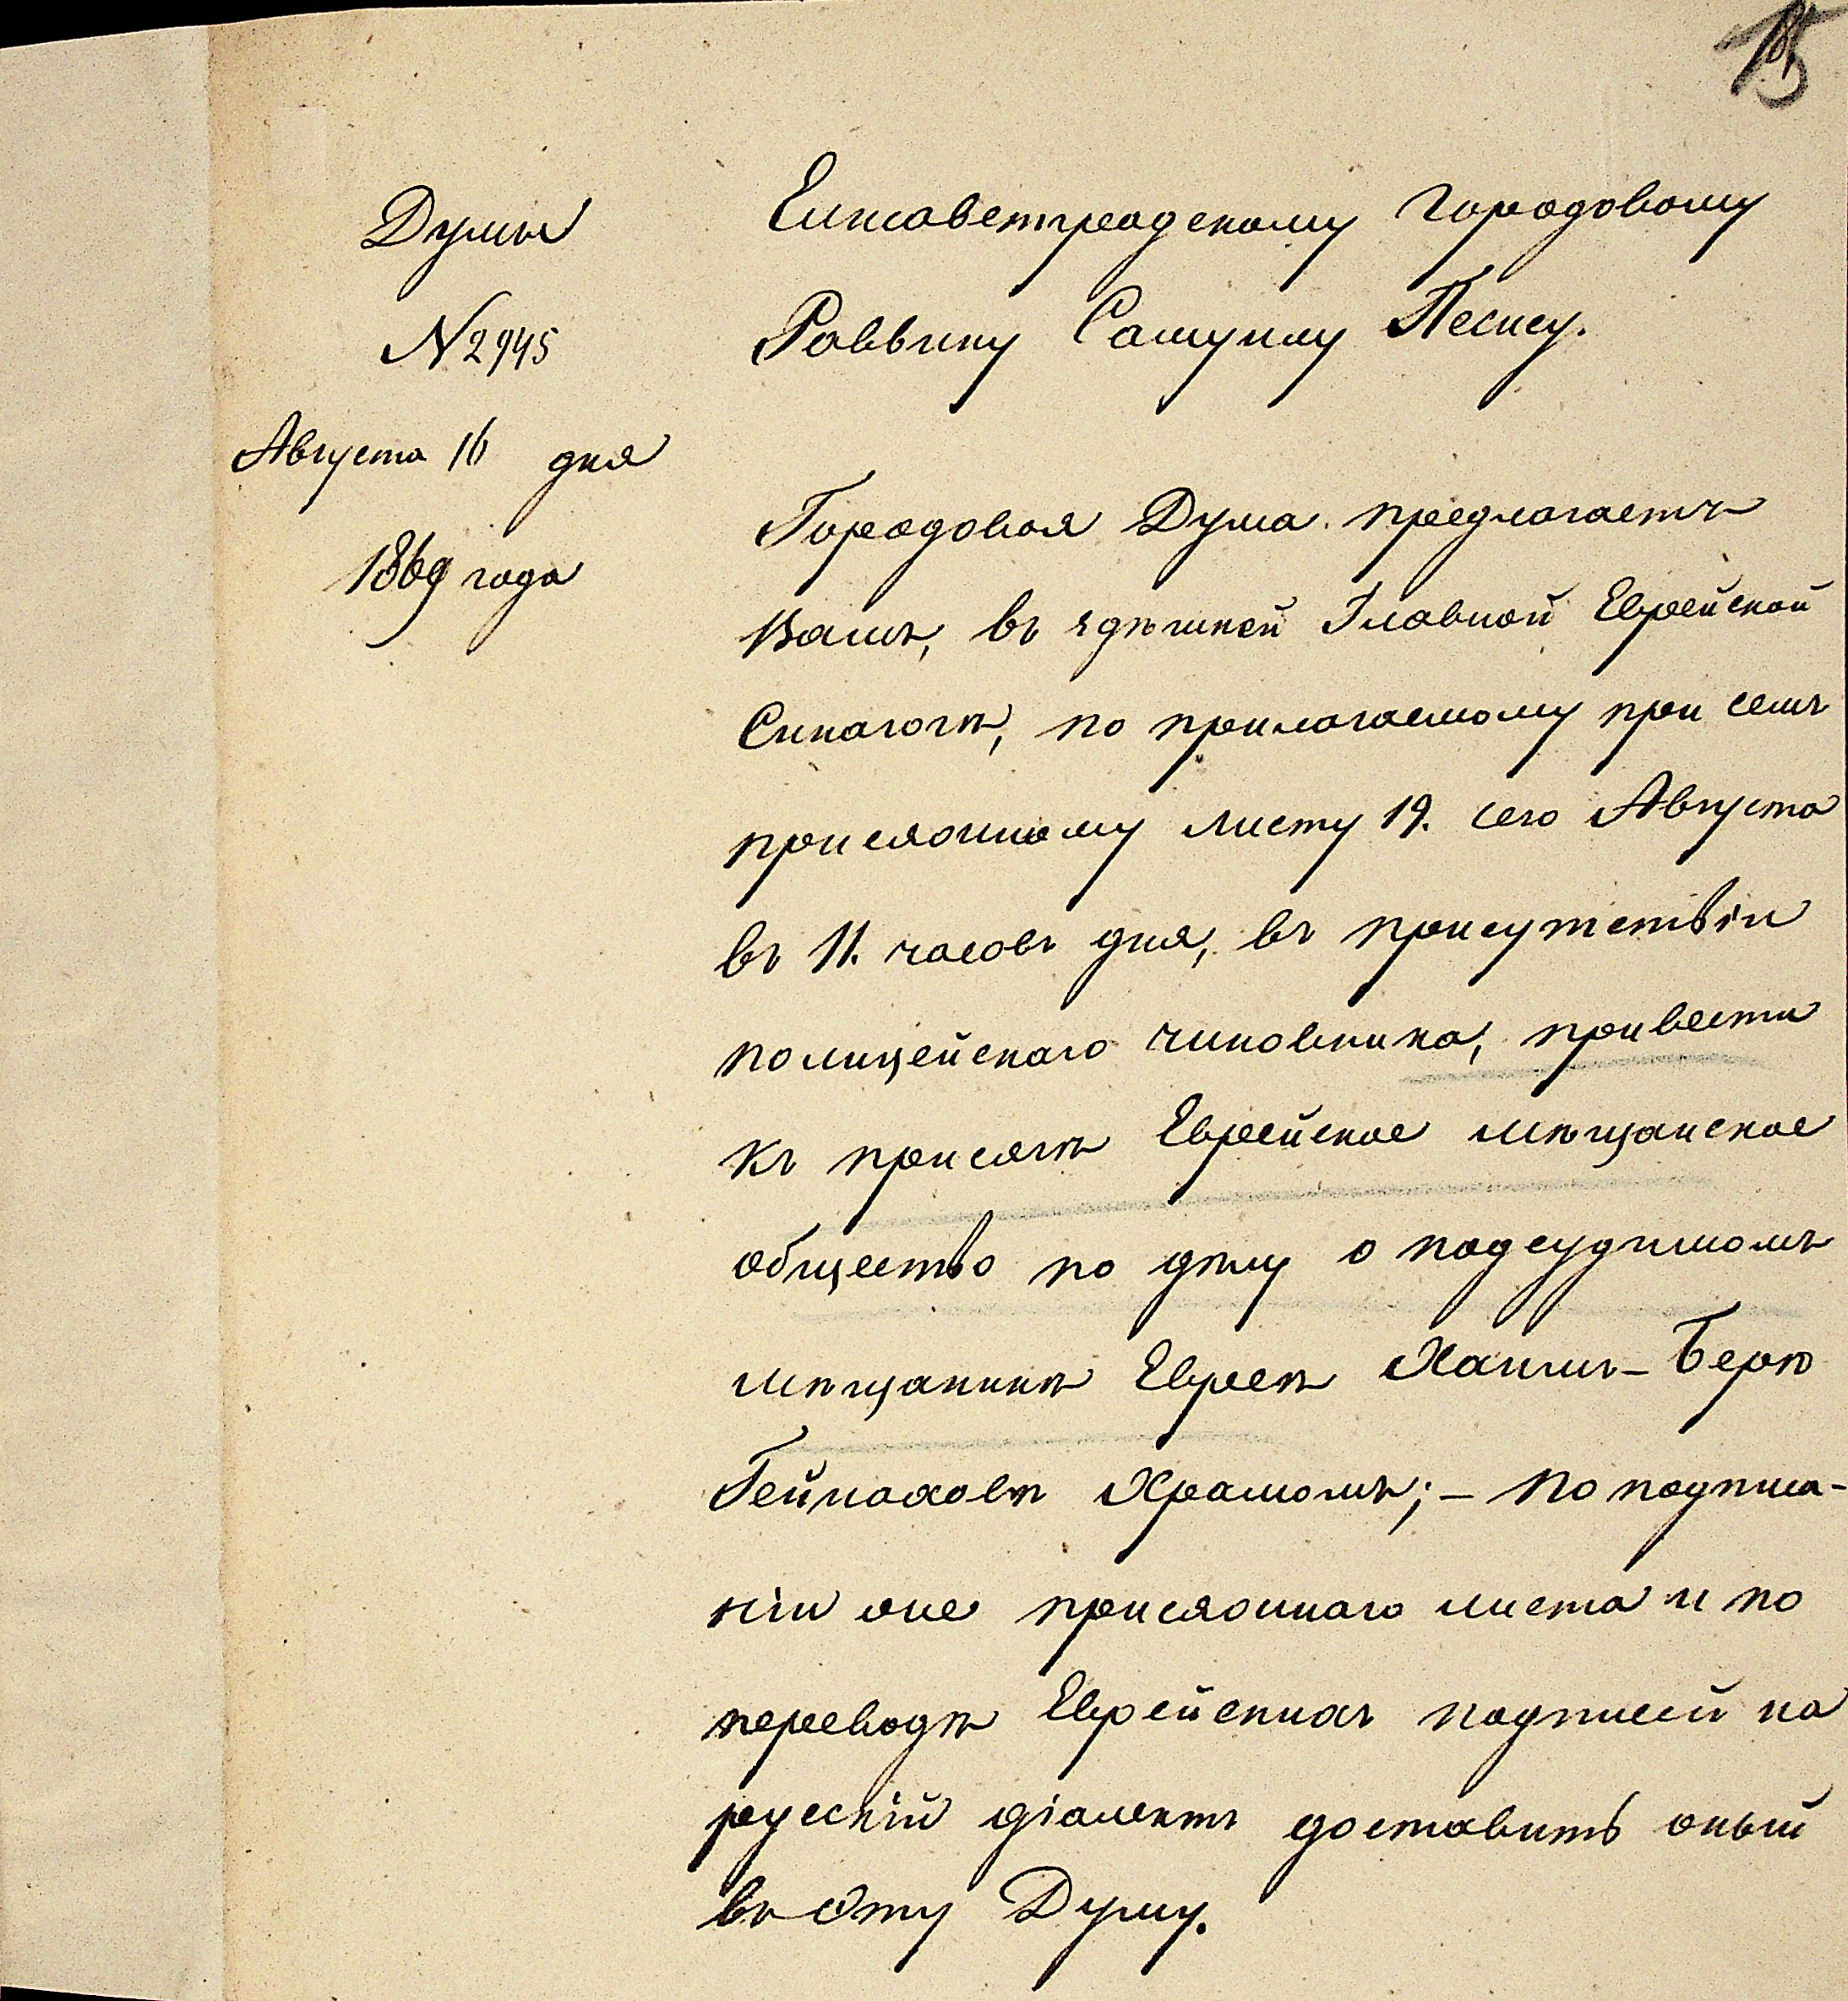 15
Думы
N 2945
Августа 16 дня
1869 года
Елисаветградскому Городовому
Раввину Самуилу Песису.
Городовая Дума предлагаетъ
Вамъ, въ здѣшней Главной Еврейской
Синагогѣ, по прилагаемому при семъ
присяжному листу 19. сего Августа
въ 11. часовъ дня, въ присутствіи
полицейскаго чиновника, привести
къ присягѣ Еврейское мѣщанское
общество по дѣлу о подсудимомъ
мѣщанинѣ Евреѣ Хаимъ-Беркѣ
Гейнаховѣ Храмомъ; - по подписа-
ніи онe присяжнаго листа и по
переводѣ Еврейскихъ подписей на
русскій діалектъ доставить оный
въ Эту Думу.